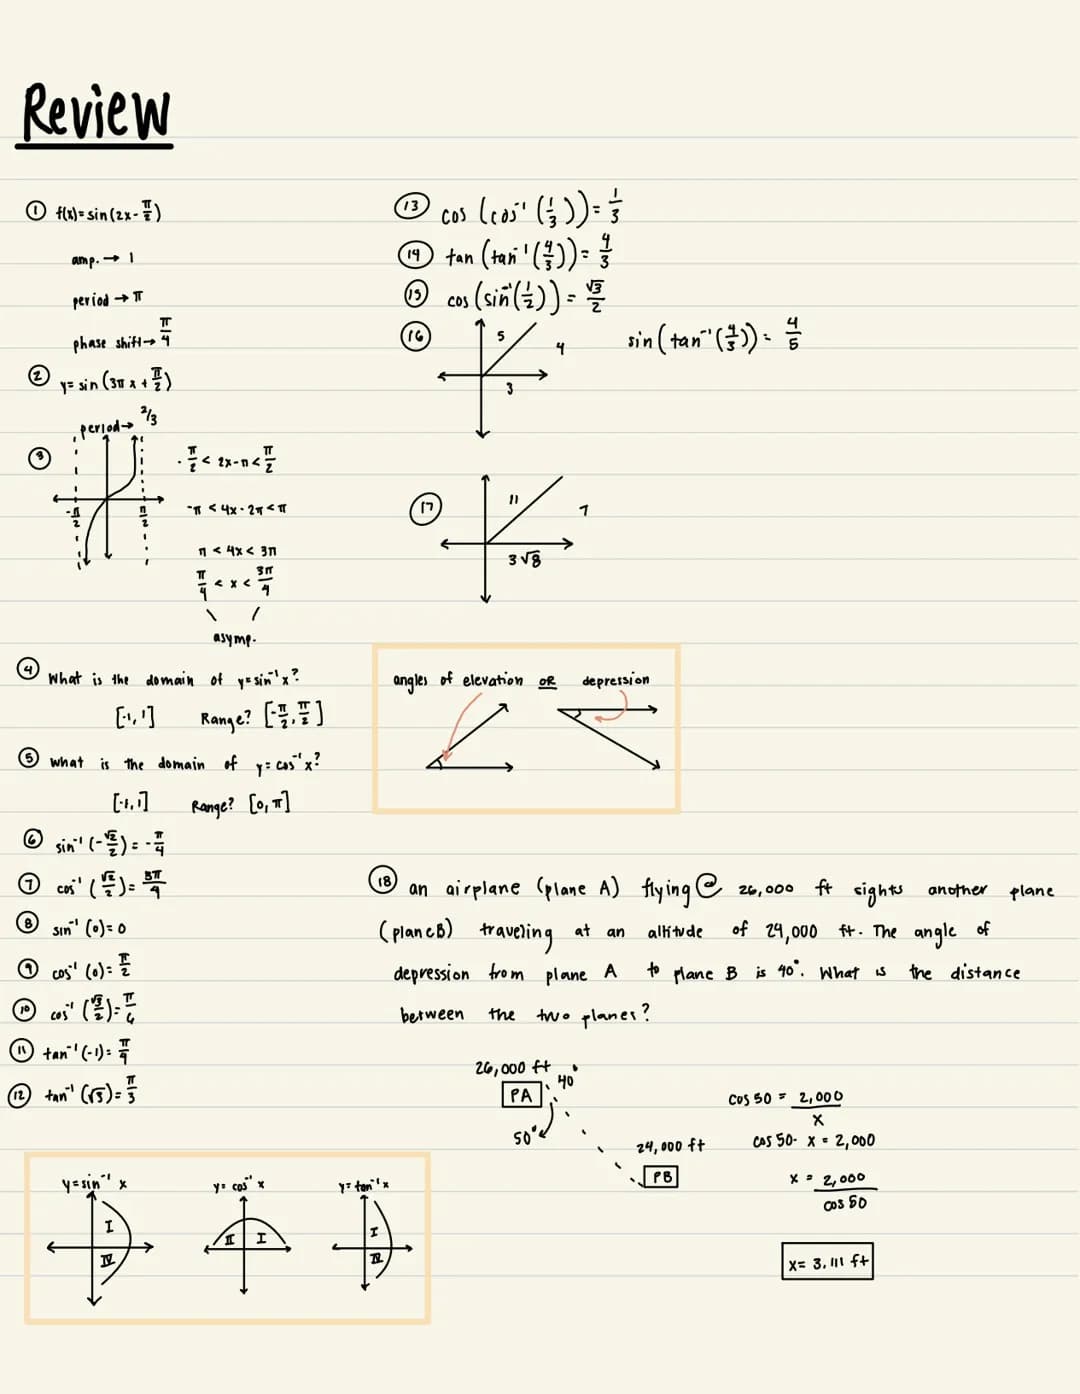 Review
① f(x)= sin(2x - π/2)
amp. → 1
period → π
phase shift → π/4
② y= sin (3π x + π/2)
period → 2/3
③
-π/2
π/2
-π/2 < 2x-π < π/2
-π < 4x - 2π < π
π < 4x < 3π
π/4 < x < 3π/4
asymp.
④ What is the domain of y=sin⁻¹x?
[-1, 1] Range? [-π/2, π/2]
⑤ what is the domain of y= cos⁻¹x?
[-1, 1] Range? [0, π]
⑥ sin⁻¹ (-√2/2) = -π/4
⑦ cos⁻¹ (√2/2) = 3π/4
⑧ sin⁻¹ (0)= 0
⑨ cos⁻¹ (0)= π/2
⑩ cos⁻¹ (√3/2)= π/6
⑪ tan⁻¹(-1)= π/4
⑫ tan⁻¹ (√3)= π/3
y=sin⁻¹ x
I
IV
y= cos⁻¹ x
II I
y= tan⁻¹x
I
IV
⑬ cos (cos⁻¹ (1/3))= 1/3
⑭ tan (tan⁻¹(4/3))= 4/3
⑮ cos (sin⁻¹(1/2)) = √3/2
⑯ 5 4 3 sin(tan⁻¹(4/3)) = 4/5
⑰ 11 7
3√8
angles of elevation OR depression
⑱ an airplane (plane A) flying @ 26,000 ft sights another plane
(plane B) traveling at an altitude of 24,000 ft. The angle of
depression from plane A to plane B is 40°. What is the distance
between the two planes?
26,000 ft
PA 40°
50°
24,000 ft
PB
cos 50 = 2,000/x
cos 50 · x = 2,000
x = 2,000/cos 50
x= 3,111 ft